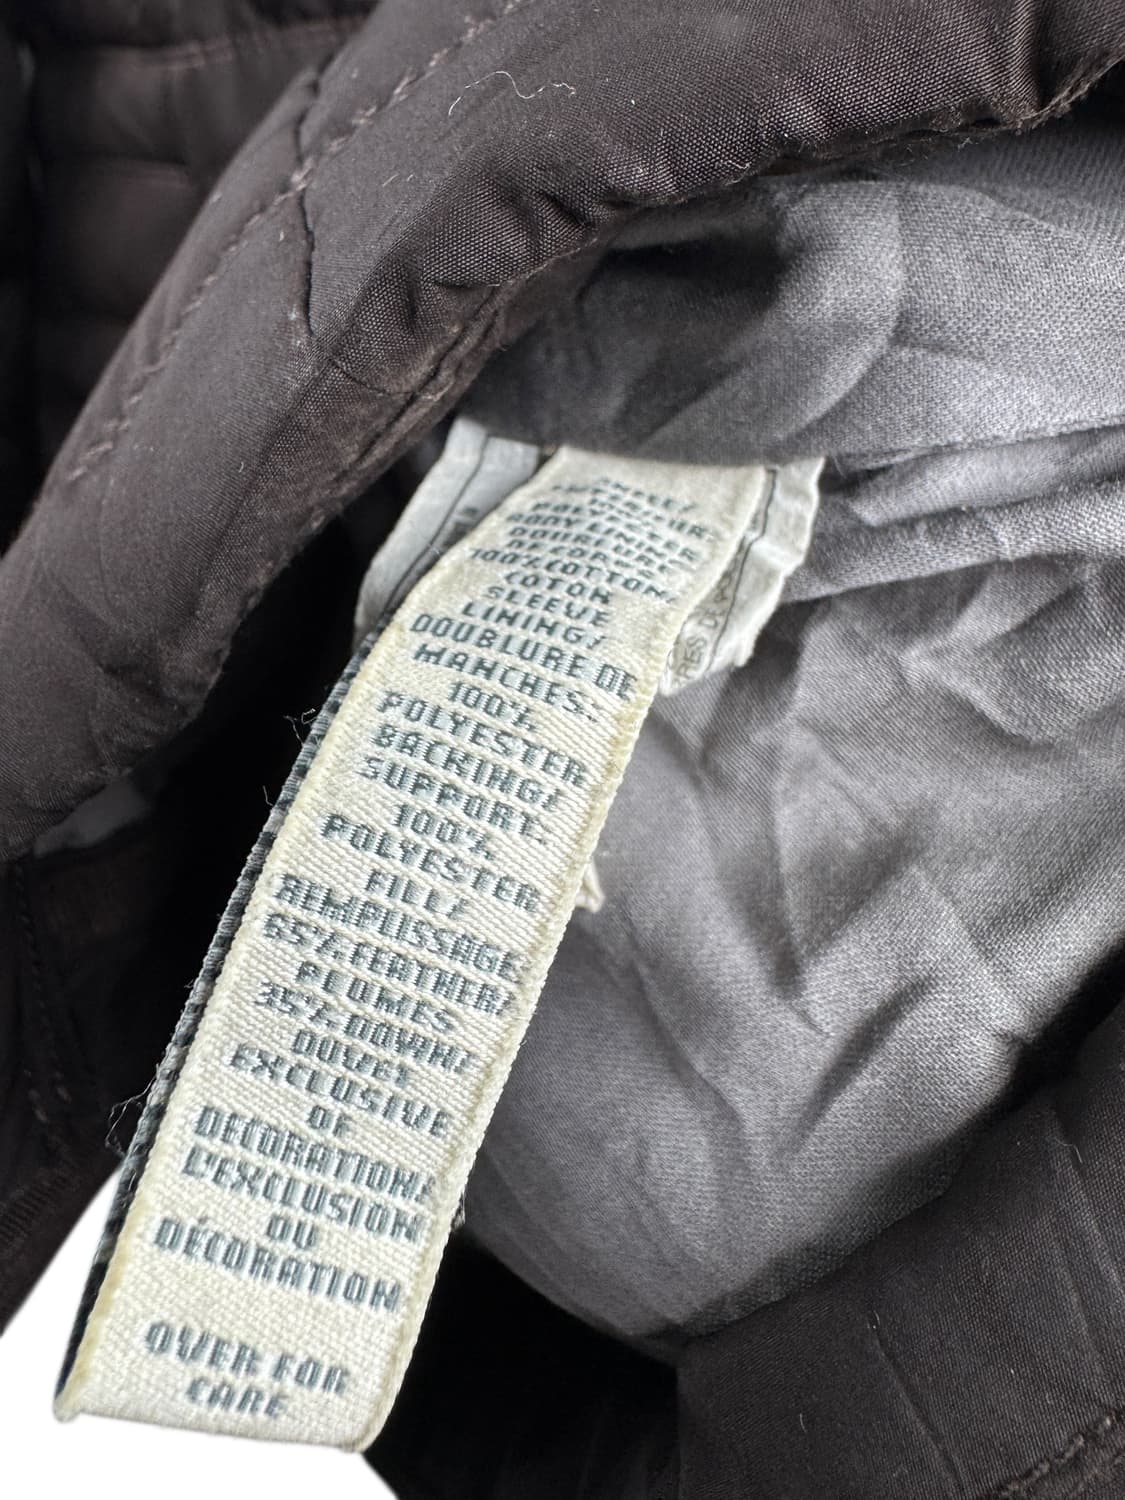 BODY LINING/
DOUBLURE
DE CORPS:
100% COTTON/
COTON
SLEEVE
LINING/
DOUBLURE DE
MANCHES:
100%
POLYESTER
BACKING/
SUPPORT:
100%
POLYESTER
FILL/
REMPLISSAGE
65% FEATHER/
PLUMES
35% DOWN/
DUVET
EXCLUSIVE
OF
DECORATION/
L'EXCLUSION
OU
DÉCORATION
OVER FOR
CARE